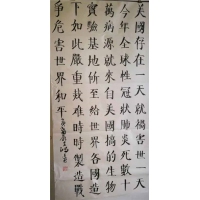 美國存在一天就禍害世一天
今年全球性冠狀肺炎死數十
萬病源就来自美國搞的生物
實驗基地所至给世界各國造
下如此嚴重災難時時製造戰
争危害世界和平